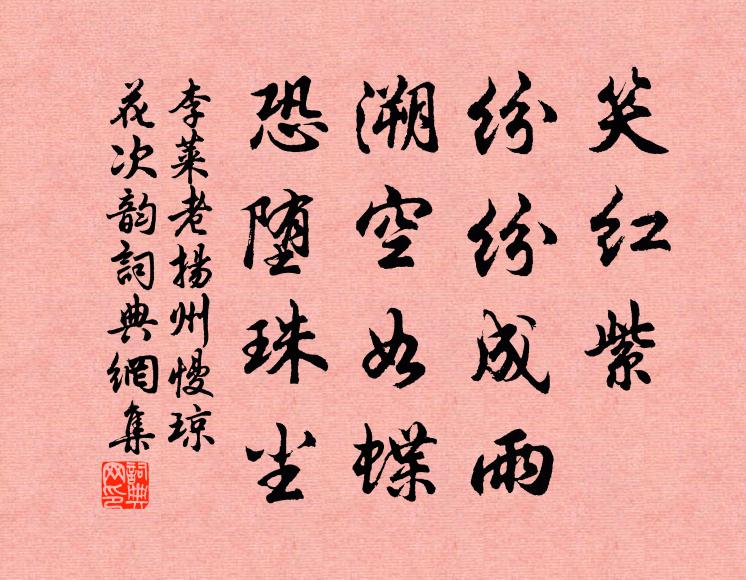 笑红紫
纷纷成雨
溯空如蝶
恐堕珠尘
李莱老揚州慢琼
花次韵詞典網集
詞典网印